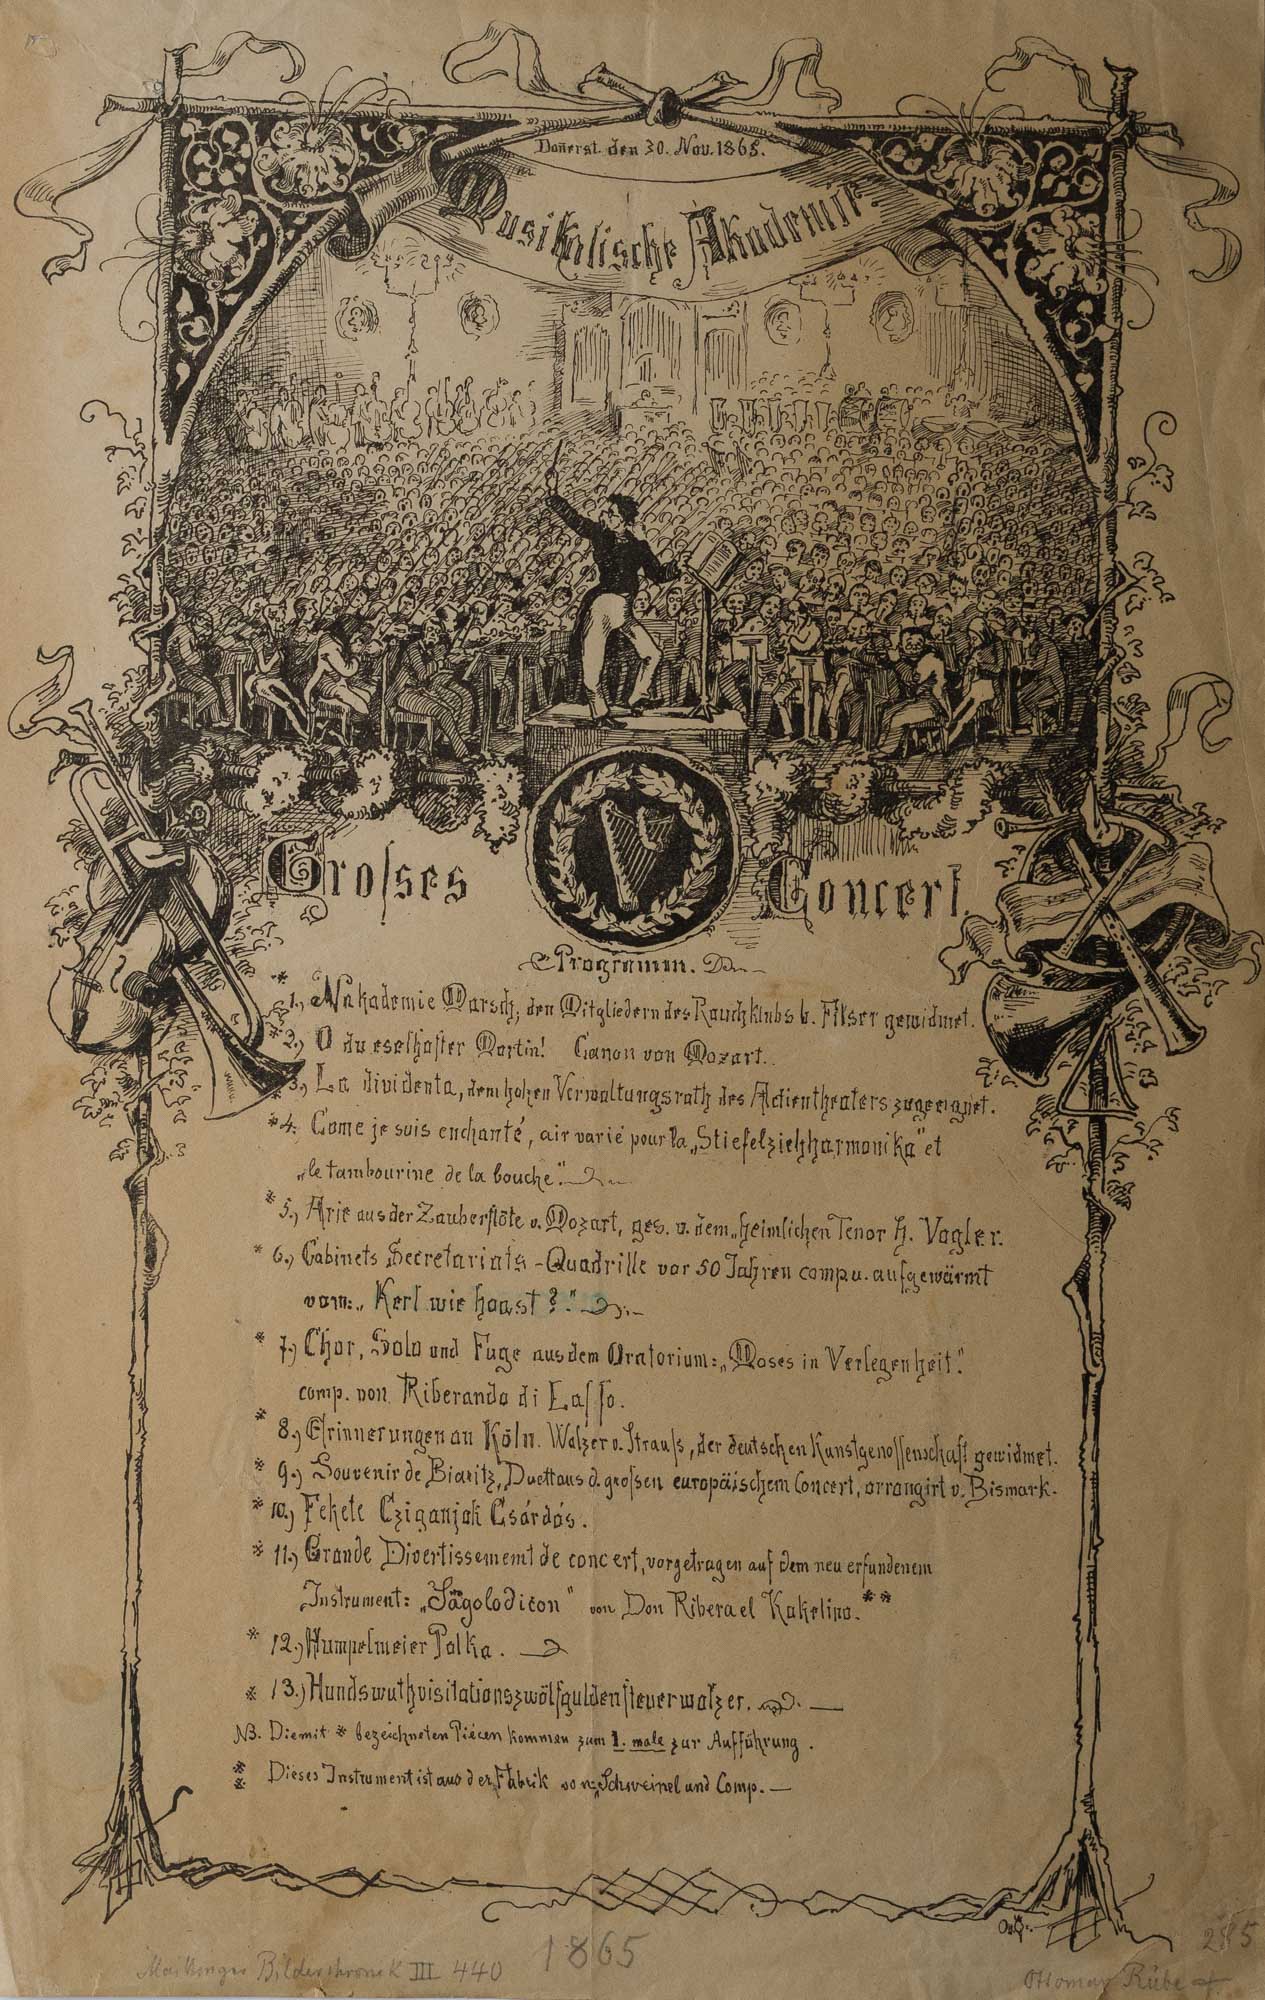 Donerst. den 30. Nov. 1865.
Musikalische Akademie.
Grosses Concert.
Programm.
* 1.) Nakademie Marsch, den Mitgliedern des Rauchklubs b. Filser gewidmet.
* 2.) O du eselhafter Martin! Canon von Mozart.
* 3.) La dividenta, dem hohen Verwaltungsrath des Actientheaters zugeeignet.
* 4. Come je suis enchanté, air varié pour la „Stiefelziehharmonika" et
„le tambourine de la bouche".
* 5.) Arie aus der Zauberflöte v. Mozart, ges. v. dem „heimlichen Tenor H. Vogler.
* 6.) Cabinets Secretariats-Quadrille vor 50 Jahren comp u. aufgewärmt
vom: „Kerl wie haast?".
* 7.) Chor, Solo und Fuge aus dem Oratorium: „Moses in Verlegenheit".
comp. von Riberando di Lasso.
* 8.) Erinnerungen an Köln. Walzer v. Strauss, der deutschen Kunstgenossenschaft gewidmet.
* 9.) Souvenir de Biaritz, Duett aus d. grossen europäischem Concert, arrangirt v. Bismark.
* 10.) Fekete Cziganjak Csárdás.
* 11.) Grande Divertissement de concert, vorgetragen auf dem neu erfundenem
Instrument: „Sägolodicon" von Don Ribera el Kakelino. **
* 12.) Humpelmeier Polka.
* 13.) Hundswuthvisitationszwölfguldensteuerwalzer.
NB. Die mit * bezeichneten Piécen kommen zum 1. male zur Aufführung.
** Dieses Instrument ist aus der Fabrik von: „Schweinel und Comp.
Maillinger Bilderchronik III 440
1865
285
Ottomar Rübe